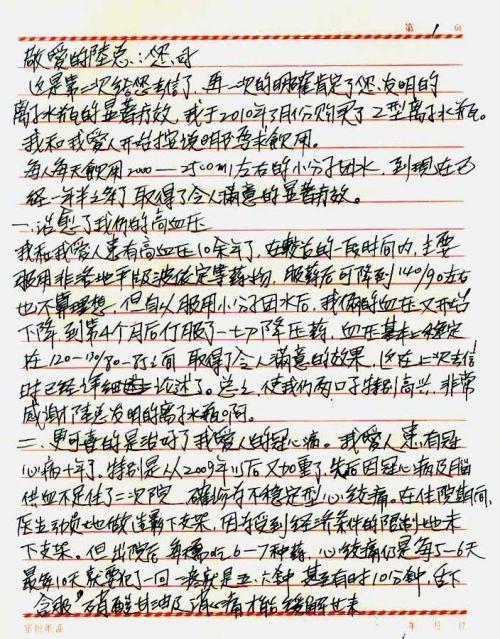 第 1 页
敬爱的陆总:您好
这是第二次给您去信了,再一次的明确肯定了您发明的
离子水瓶的显著疗效,我于2010年3月份购买了Z型离子水瓶。
我和我爱人开始按说明及要求饮用。
每人每天饮用2000—2500ml左右的小分子团水,到现在已
经一年半之多了取得了令人满意的显著疗效。
一.治愈了我们的高血压
我和我爱人患有高血压10余年了,在较长的一段时间内,主要
服用非洛地平缓波依定等药物,服药后可降到140/90左右
也不算理想,但自从服用小分子团水后,我俩的血压又开始
下降,到第4个月后停服了一切降压药,血压基本上稳定
在120—130/80—85之间取得了令人满意的效果,这在上次去信
时已经详细论述了。总之,使我们两口子特别高兴,非常
感谢陆总发明的离子水瓶啊。
二、更可喜的是治好了我爱人的冠心病。我爱人患有冠
心病十年了。特别是从2009年以后又加重了,先后因冠心病及脑
供血不足住了二次院,确诊为不稳定型心绞痛。在住院期间,
医生动员她做造影下支架,因为受到经济条件的限制她未
下支架。但出院后每天吃6—7种药,心绞痛仍是每5—6天
最多10天就要犯了一回一次就是五、六分钟,甚至有时10分钟,舌下
含服"硝酸甘油及消心痛才能缓解过来
富恒纸品
年 月 日